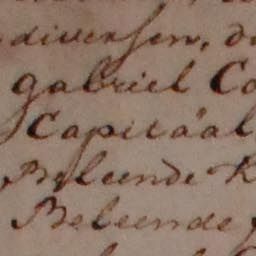 diversen, d
Gabriel Co
Capitaal
Beleende K
Beleende